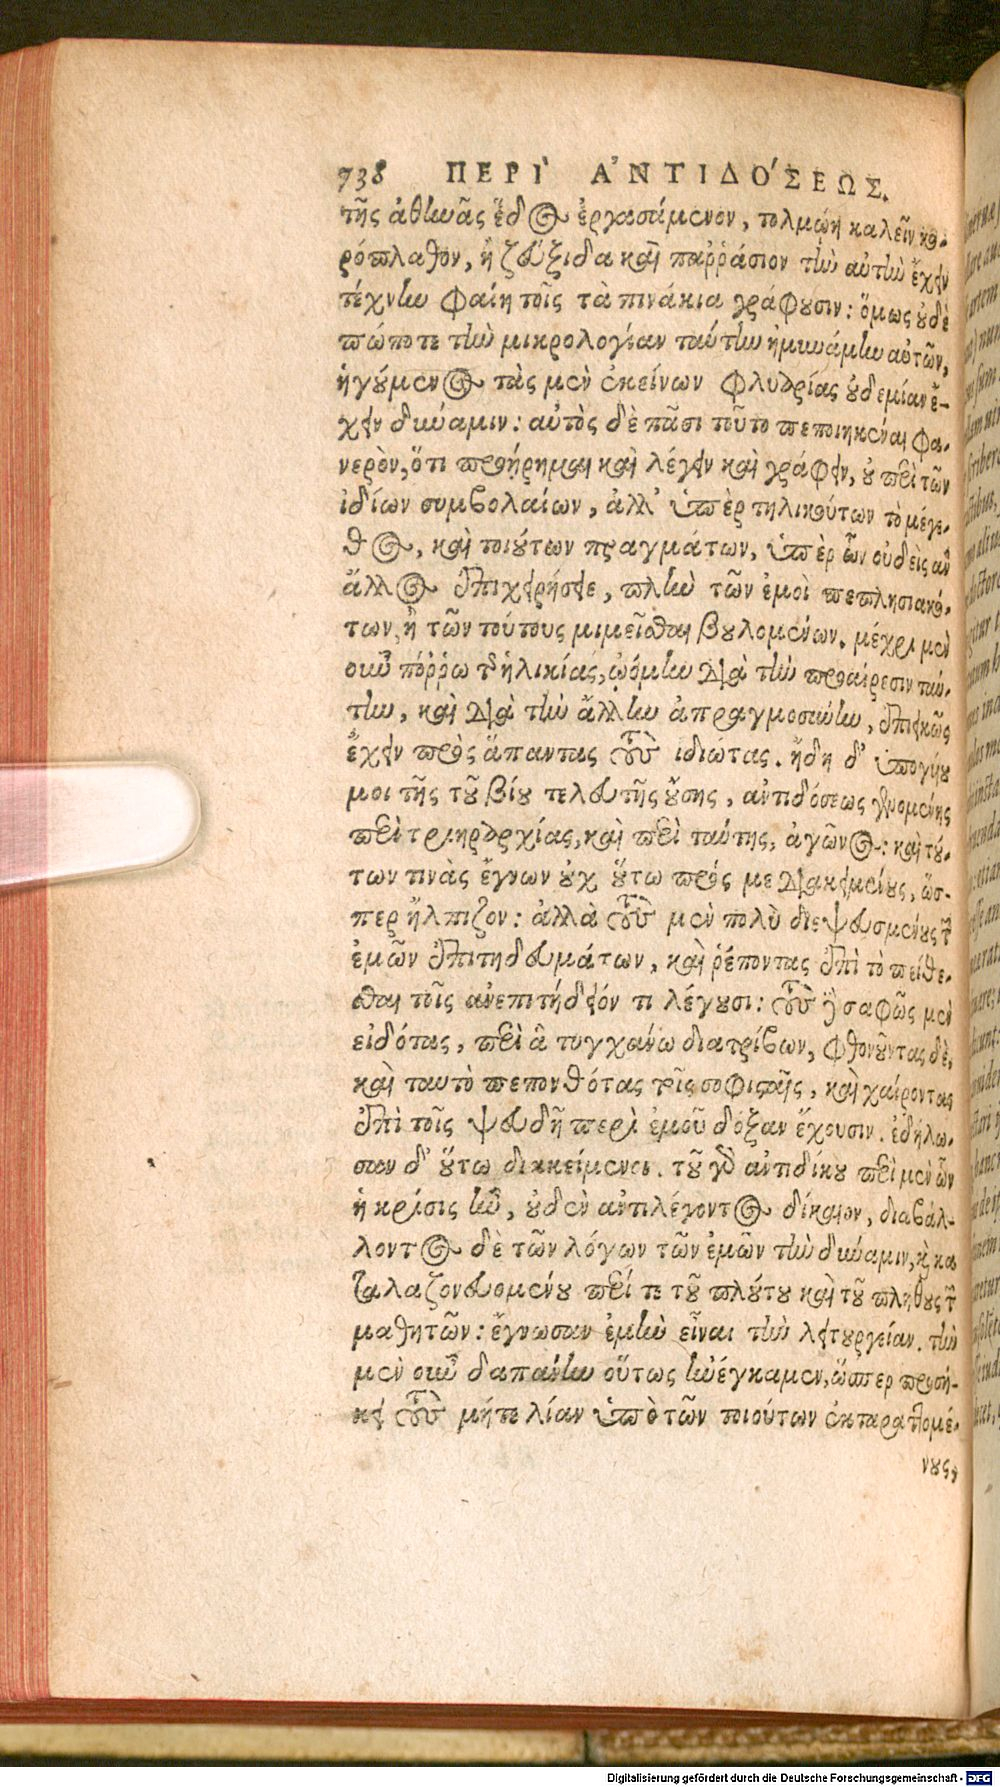 738 ΠΕΡΙ᾽ ἈΝΤΙΔΌΣΕΩΣ.
τῆς ἀθηνᾶς ἕδος ἐργασάμενον, τολμῴη καλεῖν κο-
ρόπλαθον, ἢ ζεῦξιδα καὶ παῤῥάσιον τὴν αὐτὴν ἔχειν
τέχνην φαίη τοῖς τὰ πινάκια γράφουσιν: ὅμως οὐδὲ
πώποτε τὴν μικρολογίαν ταύτην ἠμυνάμην αὐτῶν,
ἡγούμενος τὰς μὲν ἐκείνων φλυαρίας οὐδεμίαν ἔ-
χειν δύναμιν: αὐτὸς δὲ πᾶσι τοῦτο πεποιηκέναι φα-
νερὸν, ὅτι προῄρημαι καὶ λέγειν καὶ γράφειν, οὐ περὶ τῶν
ἰδίων συμβολαίων, ἀλλ' ὑπὲρ τηλικούτων τὸ μέγε-
θος, καὶ τοιούτων πραγμάτων, ὑπὲρ ὧν οὐδεὶς ἂν
ἄλλος ἐπιχειρήσειε, πλὴν τῶν ἐμοὶ πεπλησιακό-
των, ἢ τῶν τούτους μιμεῖσθαι βουλομένων. μέχρι μὲν
οὖν πόῤῥω τῆς ἡλικίας, ᾠόμην διὰ τὴν προαίρεσιν ταύ-
την, καὶ διὰ τὴν ἄλλην ἀπραγμοσύνην, ἐπιεικῶς
ἔχειν πρὸς ἅπαντας τοὺς ἰδιώτας. ἤδη δ' ὑπογύου
μοι τῆς τοῦ βίου τελευτῆς οὔσης, ἀντιδόσεως γενομένης
περὶ τριηραρχίας, καὶ περὶ ταύτης, ἀγῶνος: καὶ τού-
των τινὰς ἔγνων οὐχ οὕτω πρός με διακειμένους, ὥσ-
περ ἤλπιζον: ἀλλὰ τοὺς μὲν πολὺ διεψευσμένους τῶν
ἐμῶν ἐπιτηδευμάτων, καὶ ῥέποντας ἐπὶ τὸ πείθε-
σθαι τοῖς ἀνεπιτήδειόν τι λέγουσι: τοὺς δὲ σαφῶς μὲν
εἰδότας, περὶ ἃ τυγχάνω διατρίβων, φθονοῦντας δὲ,
καὶ ταυτὸ πεπονθότας τοῖς σοφισταῖς, καὶ χαίροντας
ἐπὶ τοῖς ψευδῆ περὶ ἐμοῦ δόξαν ἔχουσιν. ἐδήλω-
σαν δ' οὕτω διακείμενοι. τοῦ γὰρ ἀντιδίκου περὶ μὲν ὧν
ἡ κρίσις ἦν, οὐδὲν ἀντιλέγοντος δίκαιον, διαβάλ-
λοντος δὲ τῶν λόγων τῶν ἐμῶν τὴν δύναμιν, καὶ κα
ταλαζονευομένου περί τε τοῦ πλούτου καὶ τοῦ πλήθους τῶν
μαθητῶν: ἔγνωσαν ἐμὴν εἶναι τὴν λειτουργείαν. τὴν
μὲν οὖν δαπάνην οὕτως ἠνέγκαμεν, ὥσπερ προσή-
κει τοὺς μήτε λίαν ὑπὸ τῶν τοιούτων ἐκταραττομέ-
νους,
Digitalisierung gefördert durch die Deutsche Forschungsgemeinschaft - DFG